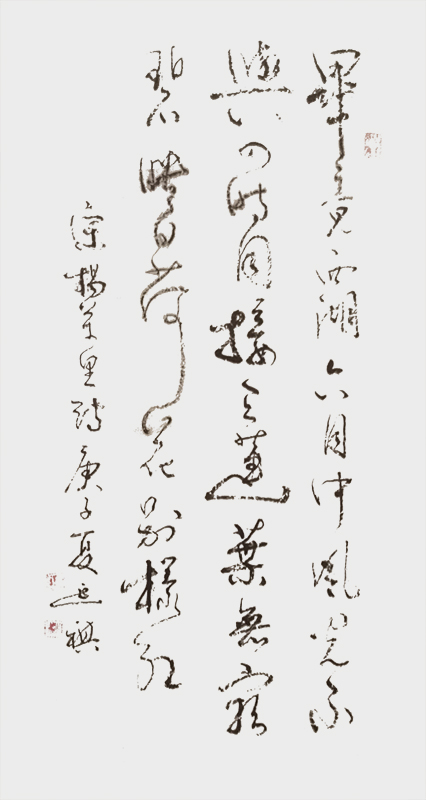 畢竟西湖六月中風光不
與四時同接天蓮葉無窮
碧映日荷花別樣紅
宋楊萬里詩庚子夏